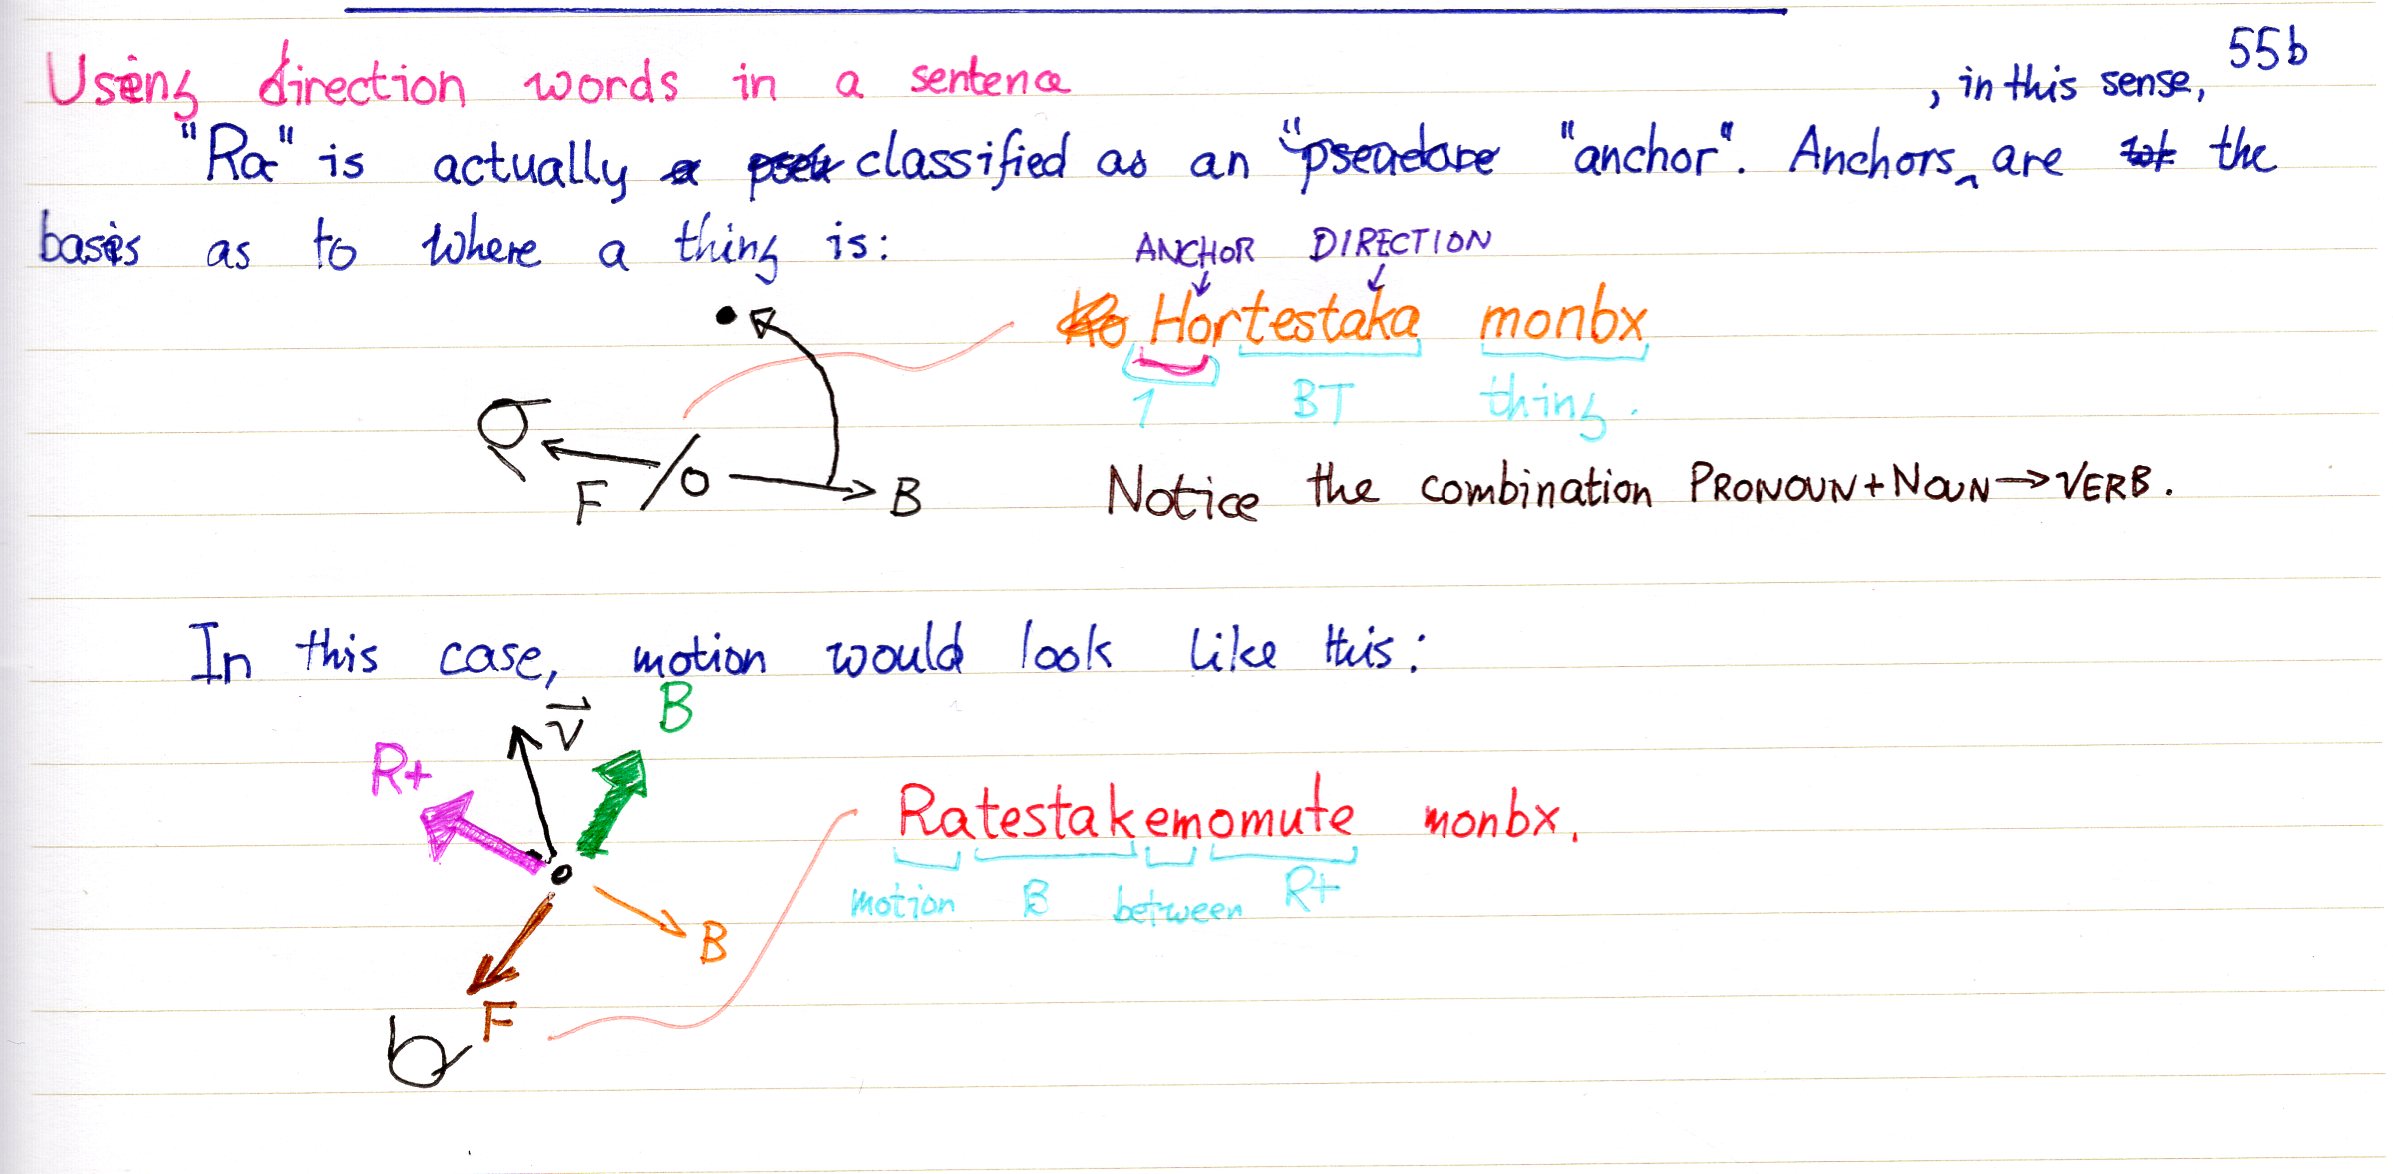 55b
Using direction words in a sentence
, in this sense,
"Ra" is actually classified as an "anchor". Anchors are the
basis as to where a thing is:
ANCHOR DIRECTION
Hortestaka monbx
1 BT thing.
F B
Notice the combination PRONOUN+NOUN→VERB.
In this case, motion would look like this:
B
v
R+
Ratestakemomute monbx.
motion B between R+
B
F